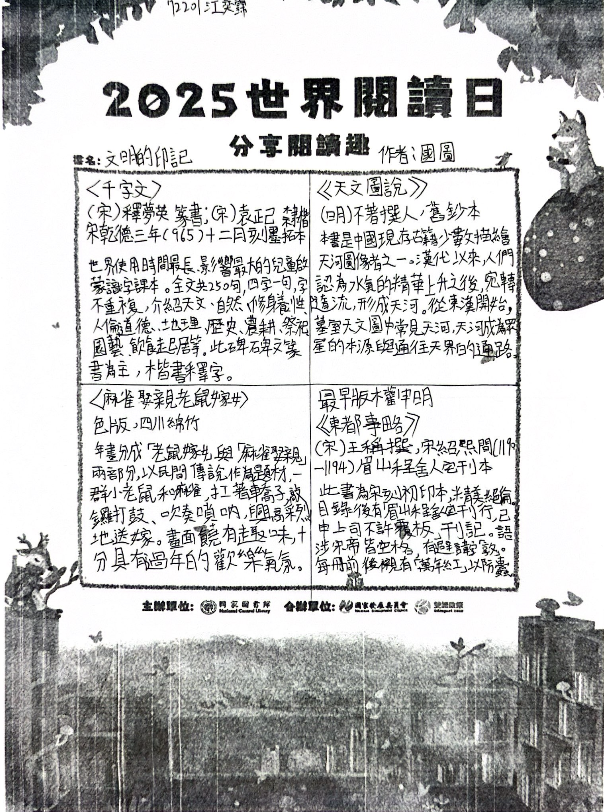 72201江奕錄
2025世界閱讀日
分享閱讀趣
書名:文明的印記 作者:國圖
《千字文》
(宋)釋夢英 篆書;(宋)袁正己 隸楷
宋乾德三年(965)十二月刻墨拓本
世界使用時間最長、影響最大的兒童啟
蒙識字課本。全文共250句,四字一句,字
不重複,介紹天文、自然、修身養性、
人倫道德、地理、歷史、農耕、祭祀
園藝、飲食起居等。此碑碑文篆
書為主,楷書釋字。
《天文圖說》
(明)不著撰人,舊鈔本
本書是中國現存古籍少數描繪
天河圖像者之一。漢代以來,人們
認為水氣的精華上升之後,宛轉
遠流,形成天河。從東漢開始,
墓室天文圖中常見天河,天河成為眾
星的本源與通往天界的通路。
《麻雀娶親老鼠嫁女》
色版,四川綿竹
年畫分成「老鼠嫁女」與「麻雀娶親」
兩部分,以民間傳說作為題材,一
群小老鼠和麻雀,扛著車喬子,敲
鑼打鼓、吹奏哨吶,興高彩烈
地送嫁。畫面饒有趣味,十
分具有過年的歡樂氣氛。
最早版權聲明
《東都事略》
(宋)王稱撰,宋紹熙間(1190
-1194),眉山程舍人宅刊本
此書為宋刻初印本,精美絕倫。
目錄後有眉山程舍宅刊行,已
申上司不許覆板,刊記。語
涉宋帝皆空格,有避諱字。
每冊前後襯有「萬年紅」以防蠹。
主辦單位: 國家圖書館 National Central Library 合辦單位: 國家發展委員會 National Development Council 雙語政策 Bilingual 2030